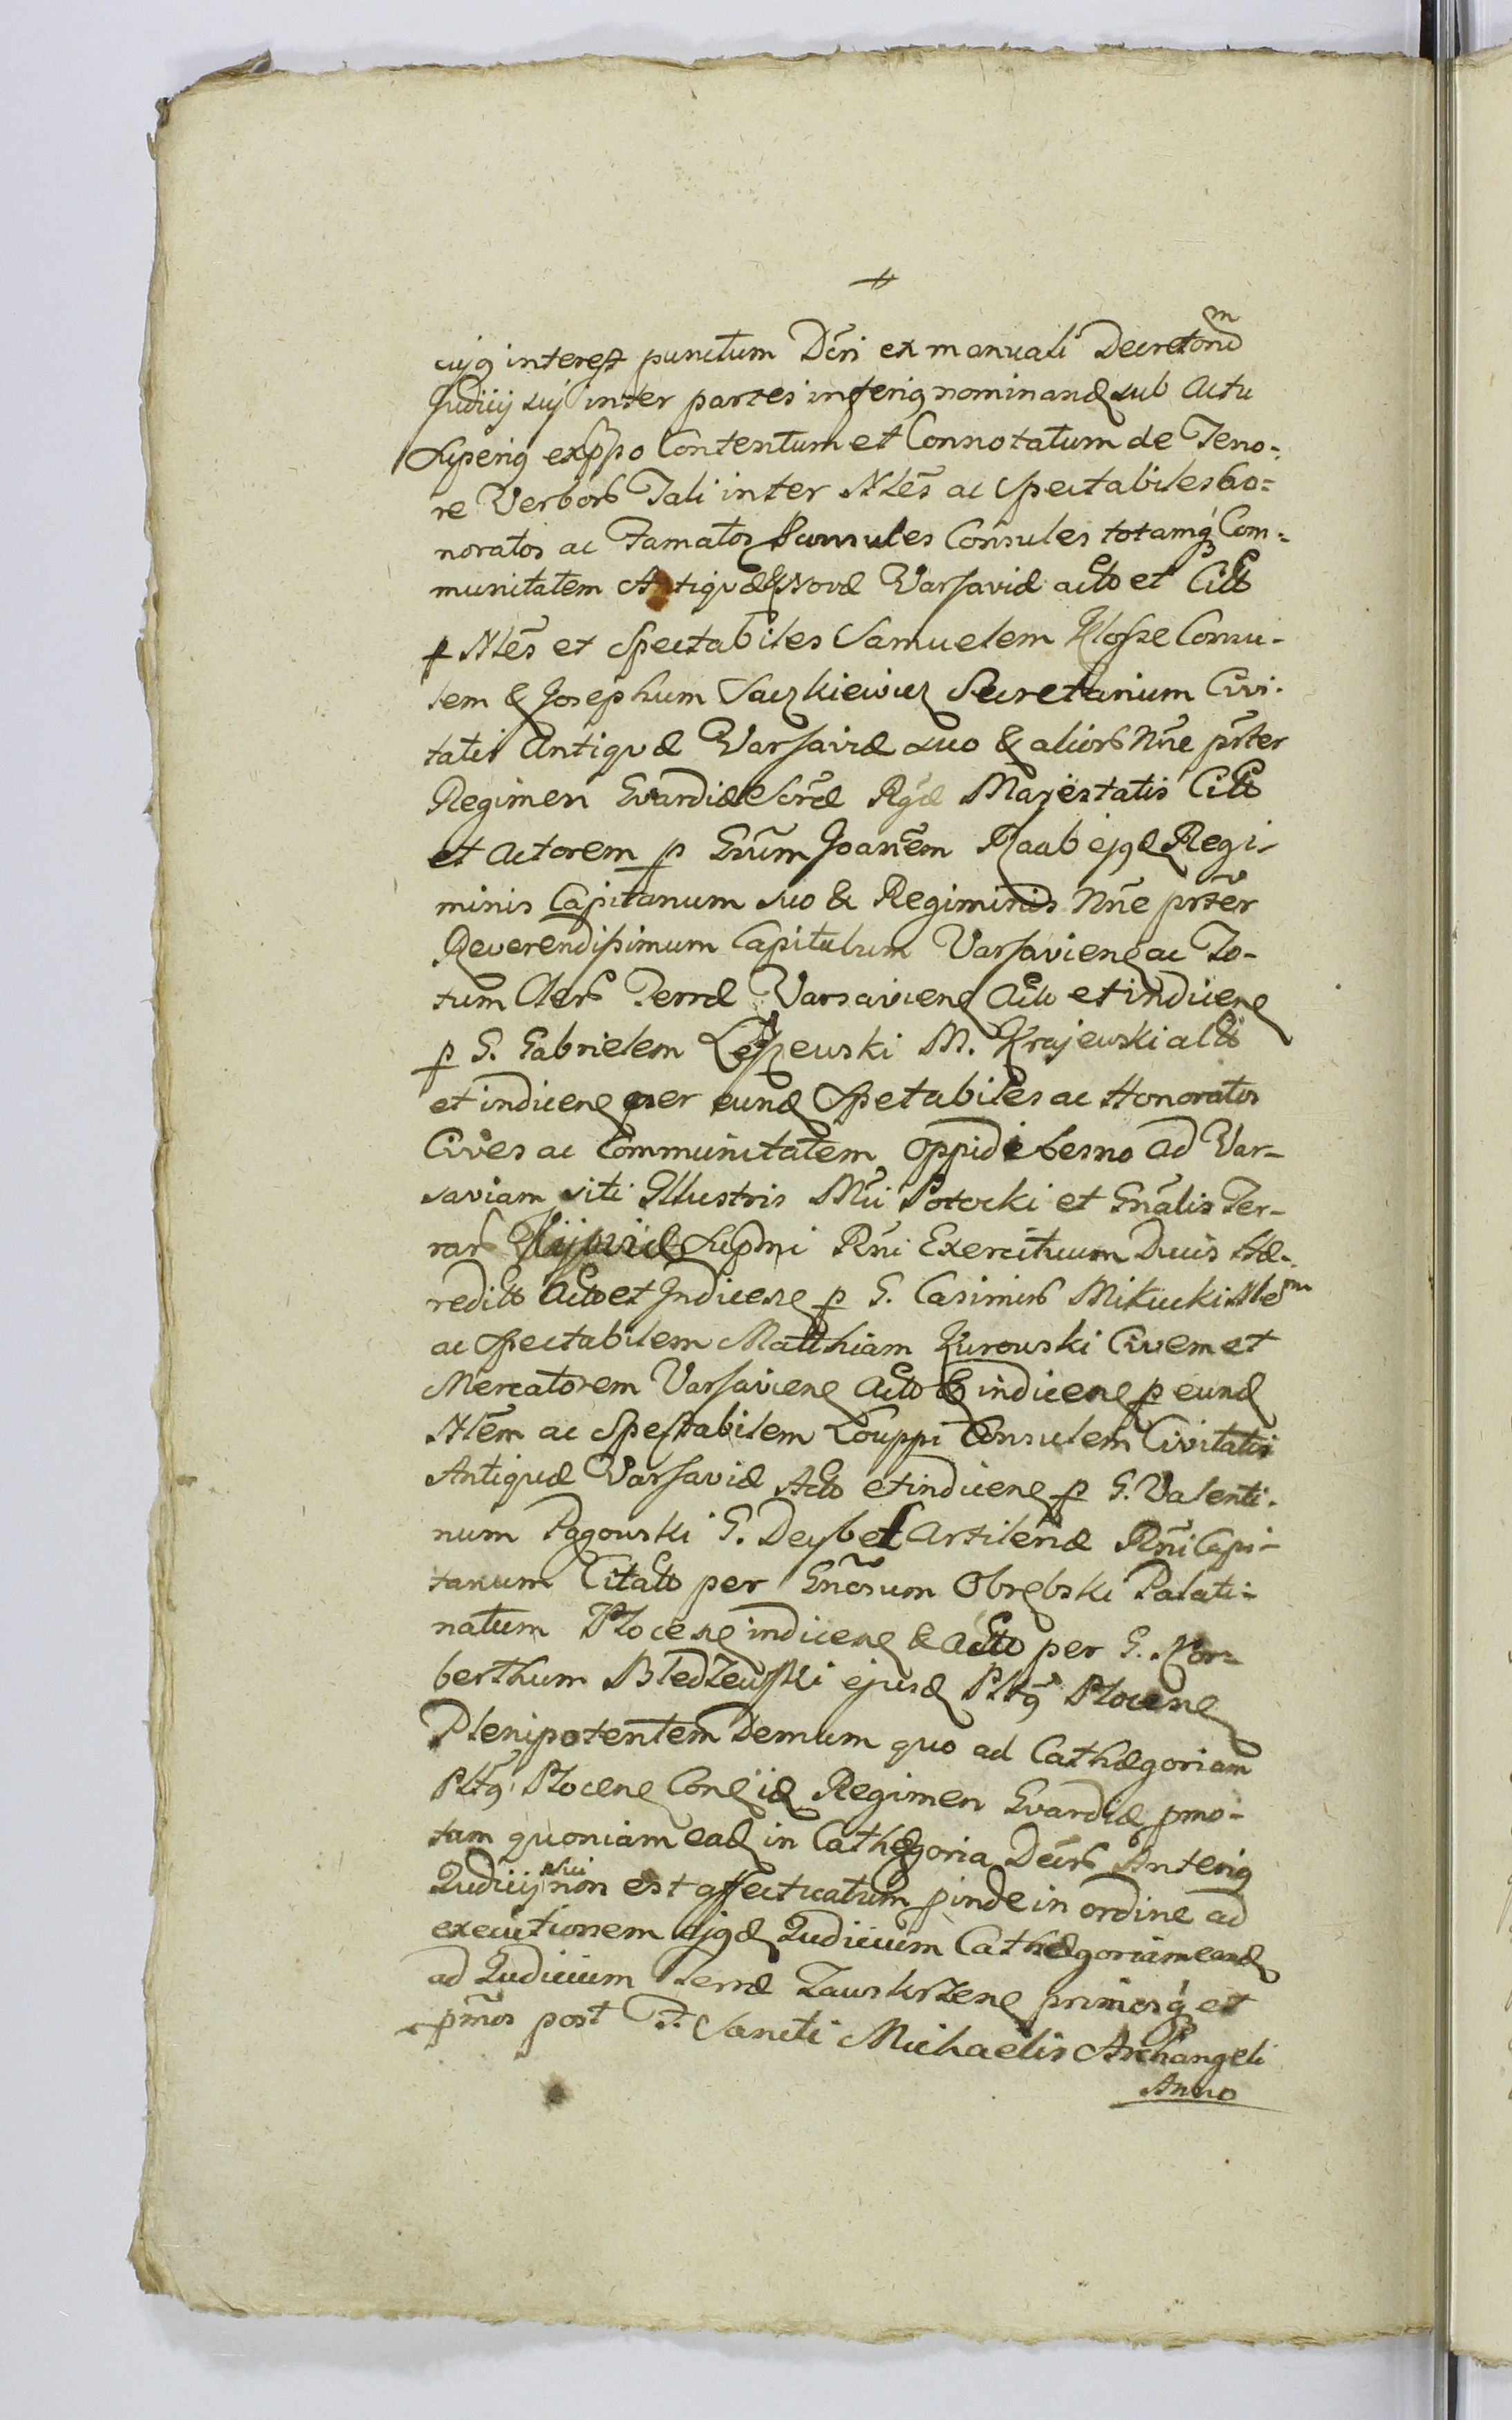 cujq interest punctum Dcri ex manuali Decretorũ m
Judicij sui inter partes inferiq nominand sub actu
Superiq exppo Contentum et Connotatum de Teno-
re Verbor Tali inter Nlēs ac Spectabiles ho-
noratos ac Famatos Consules totamq Com-
munitatem Antiquæ & Novæ Varsaviæ acto et Citto
p Nlēs et Spectabiles Samuelem Klosse Consu-
lem & Josephum Saczkiewicz Secretarium Civi-
tatis Antiquæ Varsaviæ suo & alior Nñe prter
Regimen Gvardiæ Scræ Rgæ Majestatis Citto
et actorem p Gnūm Joannēm Raab ejqd Regi-
minis Capitanum suo & Regiminis Nñe prter
Reverendissimum Capitulum Varsaviens ac To-
tum Cler Terræ Varsaviens acto et indicens
p G. Gabrielem M. Krajewski
et indicens per eund Spetabiles ac Honoratos
Cives ac Communitatem oppidi Lesno ad Var-
saviam siti Illustris Mci Potocki et Gnalis Ter-
rar Kijoviæ Supmi Rni Exercituum Ducis Hæ-
redito acto et Indicens p G. Casimir Mikucki Nle m
ac Spectabilem Matthiam Kurowski Civem et
Mercatorem Varsaviens acto & indicens p eund
Nlēm ac Spectabilem Louppi Consulem Civitatis
Antiquæ Varsaviæ Acto et indicens p G. Valenti-
num Pągowski G. Deybel Artileriæ Rni Capi-
tanum Citato per Gnōsum Obrębski Palati-
natum Plocens indicens & acto per G. Nor-
berthum Bledzewski ejusd Pltq Plocens
Plenipotentem Demum quo ad Cathægoriam
Pltq Plocens Cons id Regimen Gvardiæ pmo-
tam quoniam ead in Cathegoria Dcr Anteriq
Judicij sui non est affectuatum pinde in ordine ad
executionem ejqd Judicium Cathægoriam eand
ad Judicium Terræ Zawskrzens primosq et
pmos post F. Sancti Michaelis Archangeli
Anno